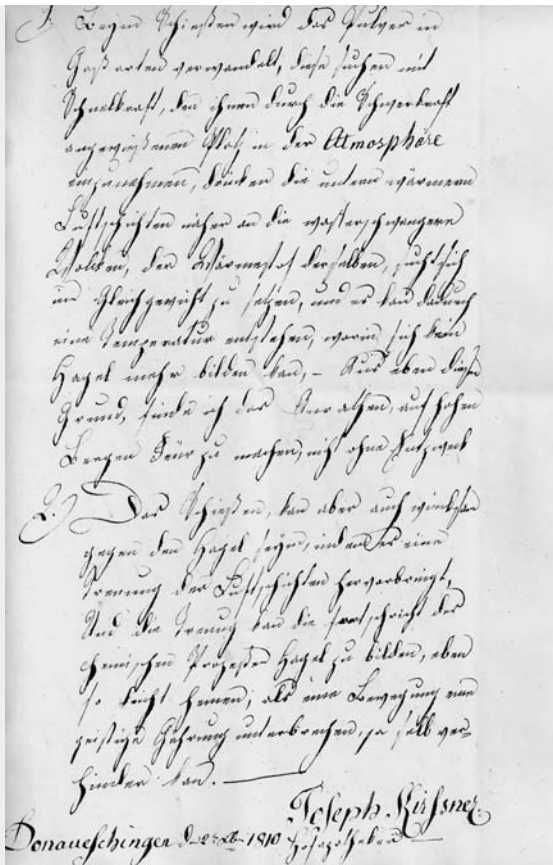 1. Beym Schießen wird das Pulver in
Gaß arten verwandelt, diese suchen mit
Schnelkraft, den ihnen durch die Schwerkraft
angewießenen Platz in der Atmosphäre
einzunehmen, drücken die untern wärmern
Luftschichten näher an die waßerschwangere
Wolcken, der Wärmestof derselben, sucht sich
ins Gleichgewicht zu setzen, und es kan dadurch
eine Temperatur entstehen, worin sich kein
Hagel mehr bilden kan, – Aus eben diesem
Grund, finde ich das Anrathen, auf hohen
Bergen Feür zu machen, nicht ohne
2.) Das Schießen, kan aber auch wircksam
gegen den Hagel seyn, indem es eine
Trenung der Luftschichten hervorbringt,
Und die Trenug kan die fortschricht des
chemischen Prozeßes Hagel zu bilden, eben
so leicht hemen, als eine Bewegung eine
geistige Gährung unterbrechen, ja selb ver-
hindern kan. —
Joseph Kirsner
Donaueschingen d 1810 Hofapotheker